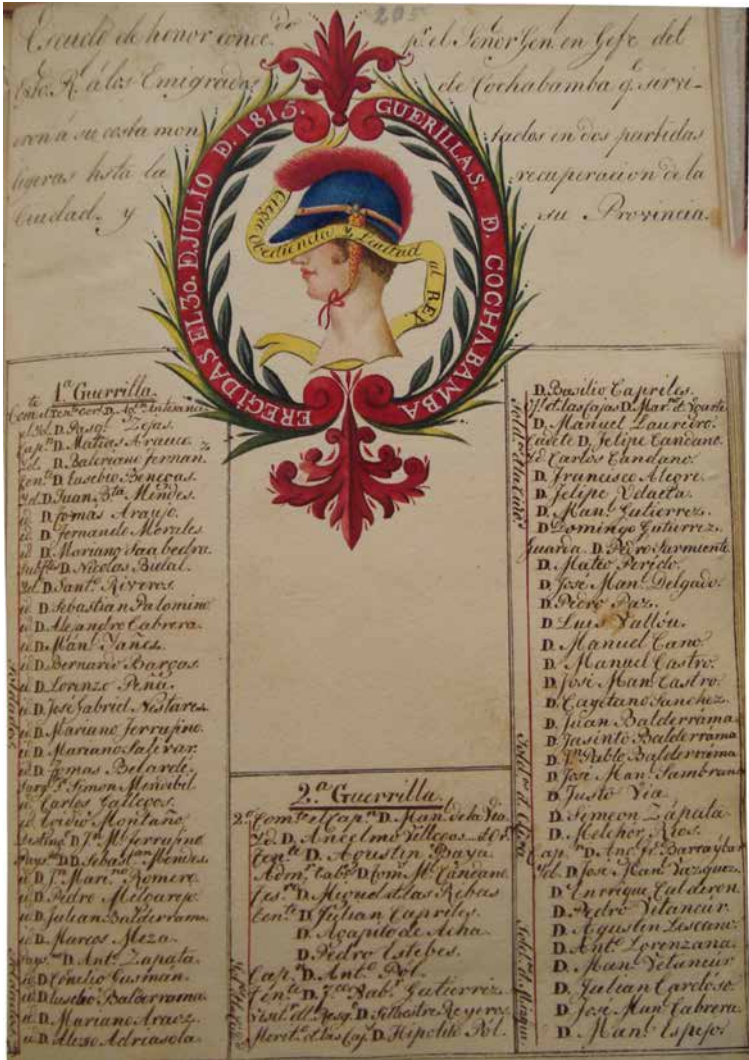 205
Escudo de honor conce.do p.r el Señor Gen. en Gefe del
Exto. R.l á los Emigrados de Cochabamba q.e sirvi-
eron á su costa mon tados en dos partidas
ligeras hsta la recuperacion de la
Ciudad. y su Provincia.
EREGIDAS EL 3o. D. JULIO D. 1815. GUERILLAS. D. COCHABAMBA
Ciega obediencia y Lealtad al REY
1.a Guerrilla
Com.te el Ten.te Cor.l D. Ag.n Antesana
el Yd. D. Pasq.l Zejas.
Cap.n D. Matias Arauco.
Yd. D. Baleriano Fernan.z
Ten.te D. Eusebio Benegas.
Yd. D. Juan B.ta Mendes.
id D. Tomas Araujo.
id D. Fernando Morales
id D. Mariano Saabedra.
Subt.te D. Nicolas Bidal.
Yd. D. Sant.o Riveros.
id D. Sebastian Palomino
id D. Alejandro Cabrera.
id D. Man.l Yañes.
id D. Bernardo Bargas.
id D. Lorenzo Peña.
id D. José Gabriel Nestares
id D. Mariano Ferrufino.
id D. Mariano Salivar.
id D. Tomas Belarde.
Sarg.to Simon Mendibil
id Carlos Gallegos.
id Ovidio Montaño
Disting.do D. J.n M. Ferrufino
Pays.no D. Sebast.an Mendes
id D. J.n Mari.no Romero
id D. Pedro Melgarejo.
id D. Julian Balderrama
id D. Marcos Meza.
Pays.no D. Ant.o Zapata.
id D. Cornelio Gusman.
id D. Eusebio Balderrama
id D. Mariano Araoz
id D. Alexo Adriasola
Soldados
2.a Guerrilla
2.o Com.te el Cap.n D. Man.l de la Via
Yd. D. Ancelmo Villegas
Ten.te D. Agustin Baya
Adm. D. Com. M. Candano
Tes.ro D. Miguel de las Rebas
Ten.te D. Julian Capriles.
D. Agapito de Acha
D. Pedro Estebes.
Cap.n D. Ant.o Pol.
Ten.te D. Gab.l Gutierrez
D. Selbestre Reyeros
D. Hipolito Pol.
D. Basilio Capriles.
Of.l de las Cajas D. Mar. Yriarte
D. Manuel Laureiro.
Cadete D. Felipe Candano.
Yd Carlos Candano.
D. Francisco Alegre.
D. Felipe Udaeta.
D. Man.l Gutierrez.
D. Domingo Gutierrez.
Guarda D. Pedro Sarmiento
D. Mateo Pericto.
D. José Man.l Delgado.
D. Pedro Paz.
D. Luis Vallón.
D. Manuel Cano.
D. Manuel Castro.
D. José Man.l Castro.
D. Cayetano Sanchez.
D. Juan Balderrama
D. Jasinto Balderrama
D. J.n Pablo Balderrama
D. José Man.l Sambrana
D. Justo Via.
D. Simeon Zapata.
D. Melchor Rios.
Cap.n D. Anc. Barraybar
Yd. D. José Man.l Vazquez.
D. Enrrique Calderon.
D. Pedro Vitancur.
D. Agustin Lescano.
D. Ant.o Lorenzana.
D. Man.l Vetancur
D. Julian Cardoso.
D. José Man.l Cabrera.
D. Man.l Espejo.